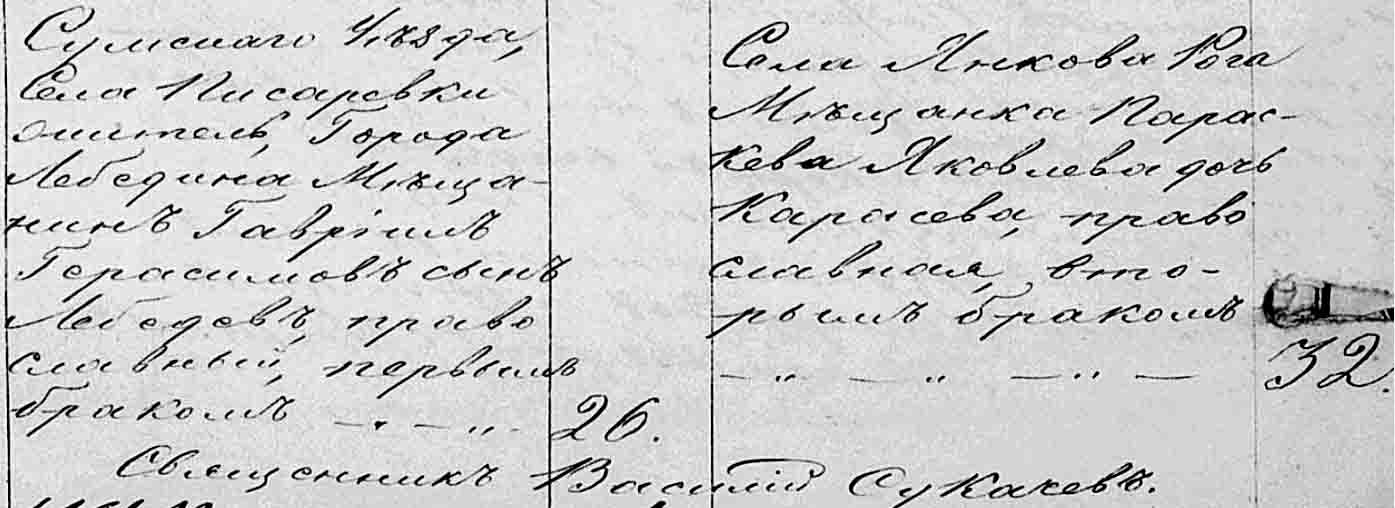 Сумскаго Уѣзда,
Села Писаревки
житель, Города
Лебедина Мѣща-
нинъ Гавріилъ
Герасимовъ сынъ
Лебедевъ, право
славный, первымъ
бракомъ — „ — „
26.
Села Янкова Рога
Мѣщанка Парас-
кева Яковлева дочь
Карасева, право
славная, вто-
рымъ бракомъ
— „ — „ — „ —
32.
Священникъ Василій Сукачевъ.